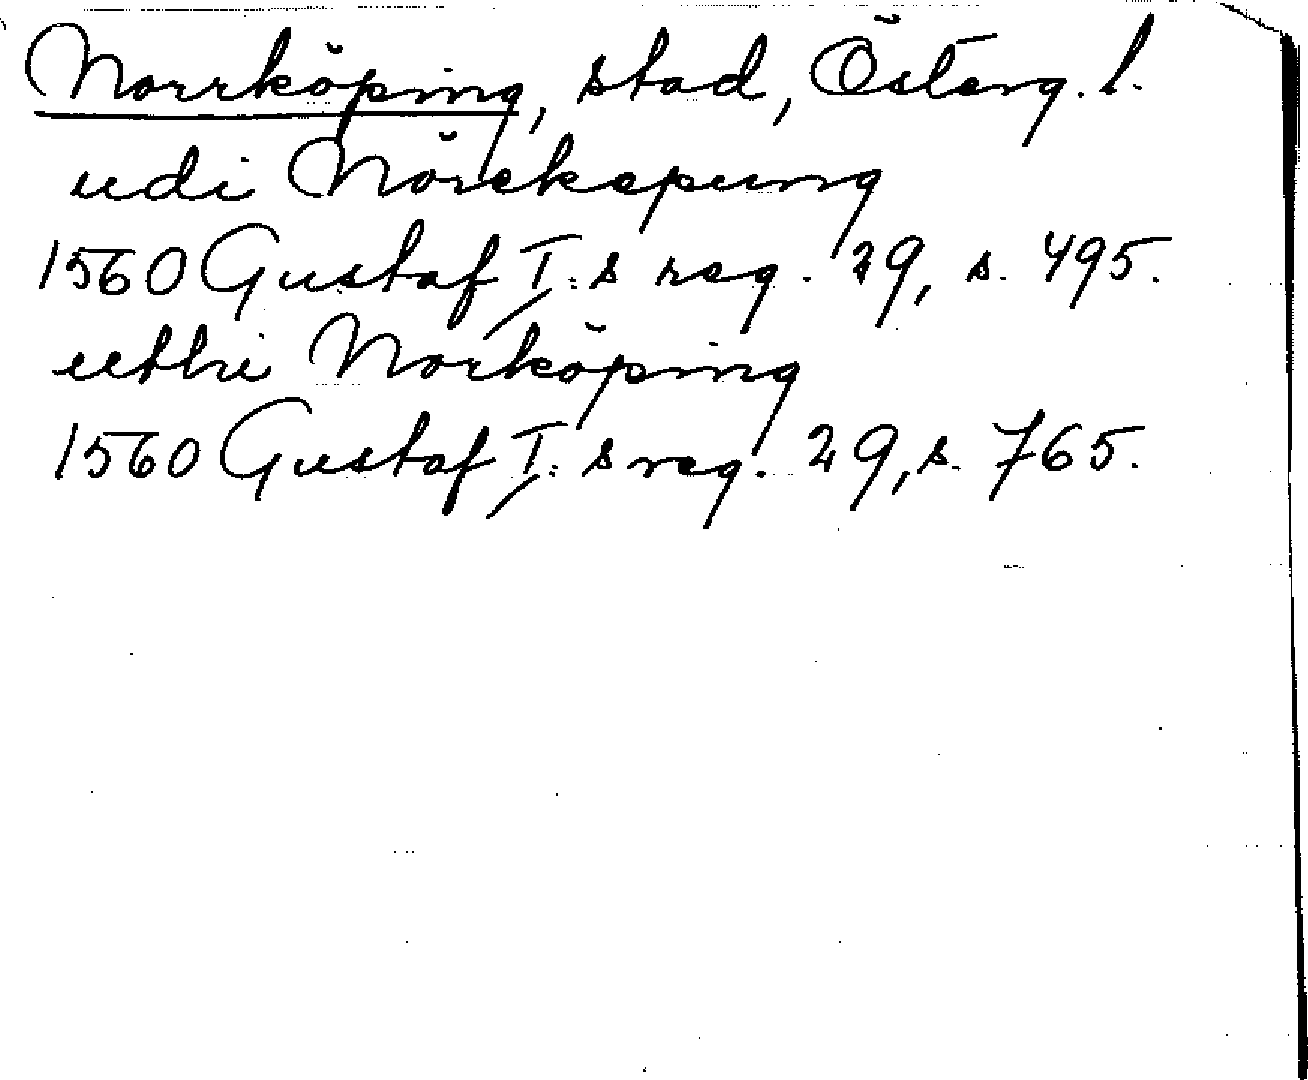 Norrköping, stad, Österg. l.
udi Nörekepung
1560 Gustaf I:s reg. 29, s. 495.
utthi Norköping
1560 Gustaf I:s reg. 29, s. 765.